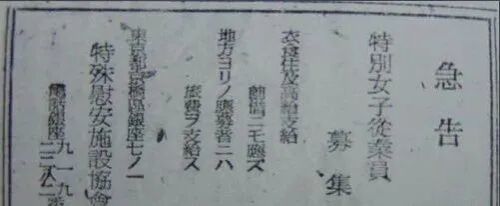 急告
特別女子從業員
募集
衣食住及高給支給
前借ニモ應ズ
地方ヨリノ應募者ニハ
旅費ヲ支給ス
東京都京橋區銀座七ノ一
特殊慰安施設協會
電話銀座
九一九
二二八二